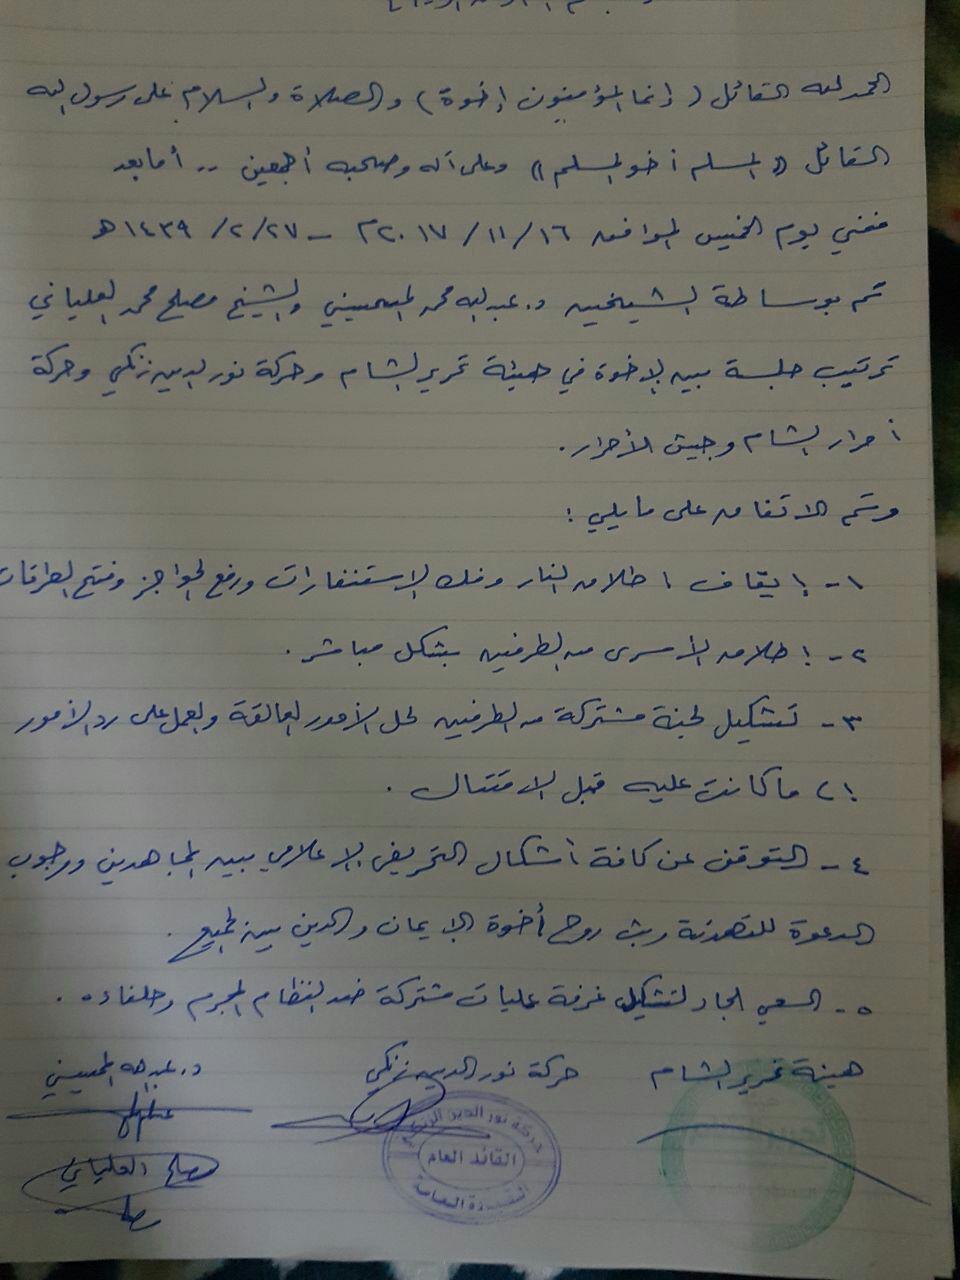 الحمد لله القائل (إنما المؤمنون إخوة) والصلاة والسلام على رسول الله
القائل «المسلم أخو المسلم» وعلى آله وصحبه أجمعين .. أما بعد
ففي يوم الخميس الموافق ١٦ / ١١ / ٢٠١٧م - ٢٧/ ٢ / ١٤٣٩ هـ
تم بوساطة الشيخين د. عبدالله محمد المحيسني والشيخ مصلح محمد العلياني
ترتيب جلسة بين الإخوة في هيئة تحرير الشام وحركة نور الدين زنكي وحركة
أحرار الشام وجيش الأحرار.
وتم الاتفاق على ما يلي :
١ - إيقاف اطلاق النار وفك الاستنفارات ورفع الحواجز وفتح الطرقات
٢ - إطلاق الأسرى من الطرفين بشكل مباشر .
٣ - تشكيل لجنة مشتركة من الطرفين لحل الأمور العالقة والعمل على رد الأمور
إلى ما كانت عليه قبل الاقتتال .
٤ - التوقف عن كافة أشكال التحريض الإعلامي بين المجاهدين ووجوب
الدعوة للتهدئة وبث روح أخوة الإيمان والدين بين الجميع .
٥ - السعي الجاد لتشكيل غرفة عمليات مشتركة ضد النظام المجرم وحلفاءه .
هيئة تحرير الشام حركة نور الدين زنكي د. عبدالله المحيسني
حركة نور الدين الزنكي
القائد العام
القيادة العامة
مصلح العلياني